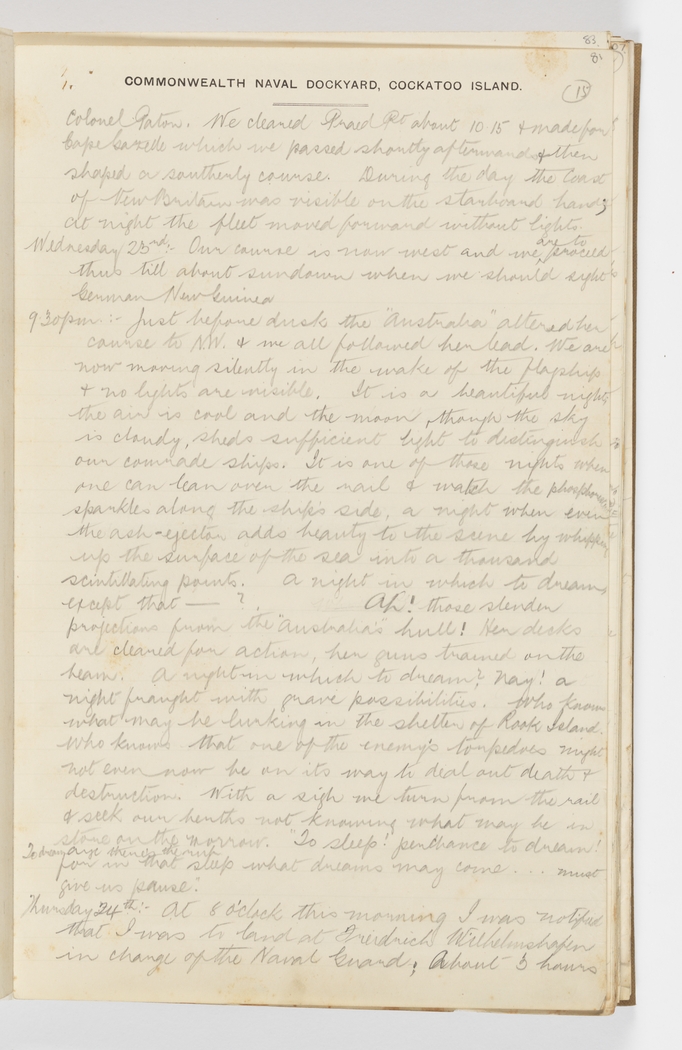 83
81
1.
COMMONWEALTH NAVAL DOCKYARD, COCKATOO ISLAND.
15
Colonel Paton. We cleared Praed Pt about 10 15 & made for
Cape Gazelle which we passed shortly afterwards & then
shaped a southerly course. During the day the Coast
of New Britain was visible on the starboard hand;
at night the fleet moved forward without lights.
Wednesday 23rd:- Our course is now west and we are to proceed
thus till about sundown when we should sight
German New Guinea
9 30pm:- Just before dusk the "Australia" altered her
course to NW. & we all followed her lead. We are
now moving silently in the wake of the flagship
& no lights are visible. It is a beautiful night,
the air is cool and the moon, though the sky
is cloudy, sheds sufficient light to distinguish
our comrade ships. It is one of those nights when
one can lean over the rail & watch the
sparkles along the ship's side, a night when even
the ash-ejector adds beauty to the scene by
up the surface of the sea into a thousand
scintillating points. A night in which to dream,
except that — ? Ah! those slender
projections from the "Australia's" hull! Her decks
are cleared for action, her guns trained on the
beam. A night in which to dream? Nay! a
night fraught with grave possibilities. Who knows
what may be lurking in the shelter of Rook Island.
Who knows that one of the enemy's torpedoes might
not even now be on its way to deal out death &
destruction. With a sigh we turn from the rail
& seek our berths not knowing what may be in
store on the morrow. "To sleep! perchance to dream!
To dream aye there's the rub
for in that sleep what dreams may come . . . must
give us pause".
Thursday 24th:- At 8 o'clock this morning I was notified
that I was to land at Friedrich Wilhelmshafen
in charge of the Naval Guard; About 3 hours